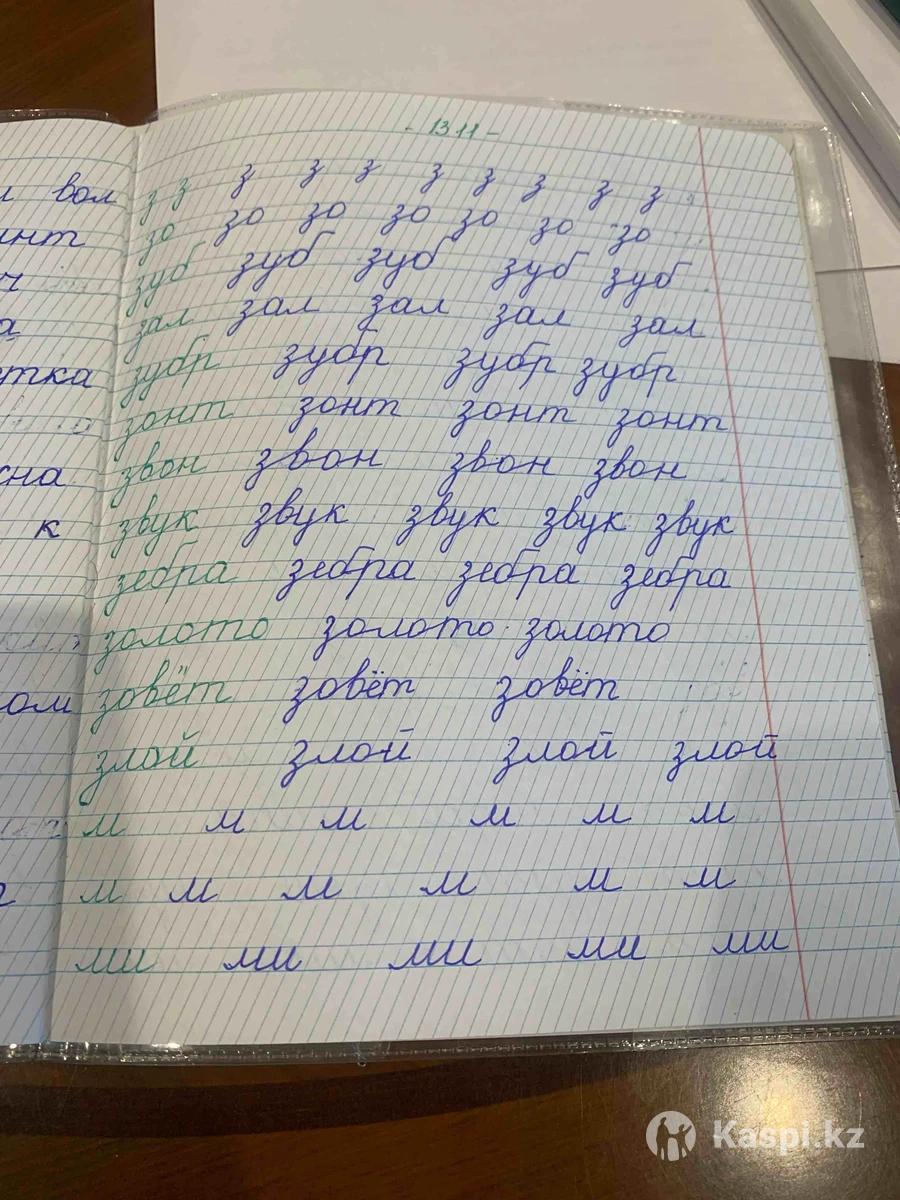 - 13 11 -
з з з з з з з з з з
зо зо зо зо зо зо зо
зуб зуб зуб зуб зуб
зал зал зал зал зал
зубр зубр зубр зубр
зонт зонт зонт зонт
звон звон звон звон
звук звук звук звук звук
зебра зебра зебра зебра
золото золото золото
зовёт зовёт зовёт
злой злой злой злой
м м м м м м
м м м м м м
ми ми ми ми ми
вол
к
Kaspi.kz